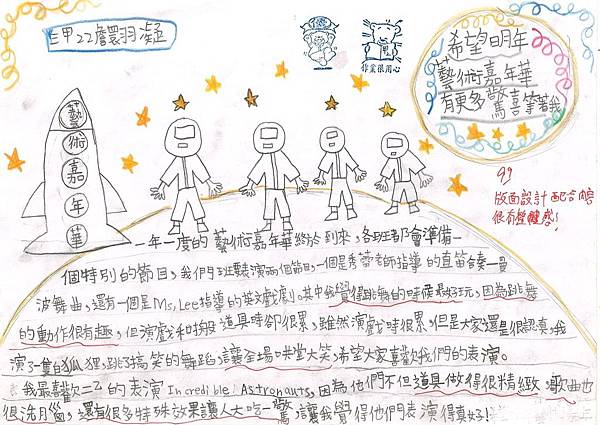 三甲22詹羽凝
作業很用心
希望明年
藝術嘉年華
有更多驚喜等著我
99
版面設計配合內容
很有整體感!
藝術嘉年華
一年一度的藝術嘉年華終於到來,各班都會準備一
個特別的節目,我們班要表演兩個節目,一個是秀蓉老師指導的直笛合奏—
波舞曲,還有一個是Ms,Lee指導的英文戲劇。其中我覺得跳舞的時候最好玩,因為跳舞
的動作很有趣,但演戲和搬道具時卻很累,雖然演戲時很累,但是大家還是很認真,我
演了一隻狐狸,跳了搞笑的舞蹈,讓全場哄堂大笑,希望大家喜歡我們的表演。
我最喜歡二乙的表演Incredible Astronauts,因為他們不但道具做得很精緻,歌曲也
很洗腦,還有很多特殊效果讓人大吃一驚,讓我覺得他們表演得真好!